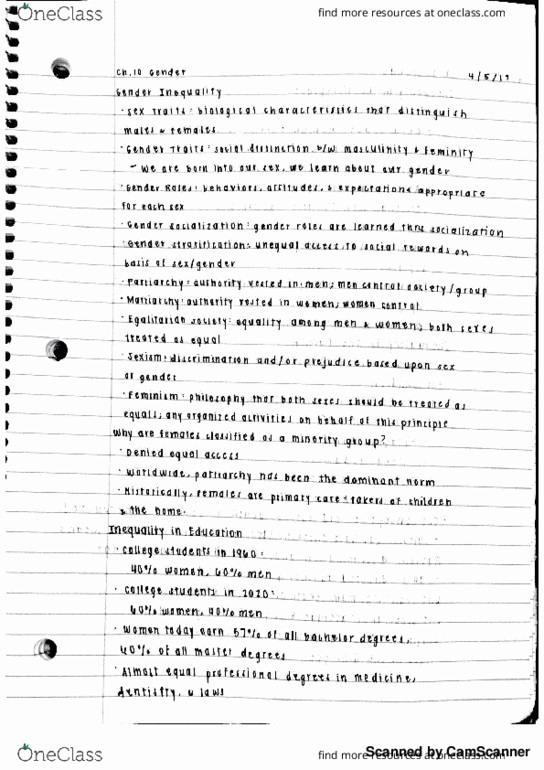 OneClass
find more resources at oneclass.com
Ch.10 Gender
4/5/17
Gender Inequality
· Sex Traits: biological characteristics that distinguish
males & females
· Gender Traits: social distinction b/w masculinity & feminity
- We are born into our sex, we learn about our gender
· Gender Roles: behaviors, attitudes, & expectations appropriate
for each sex
· Gender socialization: gender roles are learned thru socialization
· Gender stratification: unequal access to social rewards on
basis of sex/gender
· Patriarchy: authority vested in men; men control society/group
· Matriarchy: authority vested in women; women control
· Egalitarian society: equality among men & women; both sexes
treated as equal
· Sexism: discrimination and/or prejudice based upon sex
or gender
· Feminism: philosophy that both sexes should be treated as
equals; any organized activities on behalf of this principle
Why are females classified as a minority group?
· Denied equal access
· Worldwide, patriarchy has been the dominant norm
· Historically, females are primary care-takers of children
& the home.
Inequality in Education
· College students in 1960:
40% women, 60% men
· College students in 2020:
60% women, 40% men
· Women today earn 57% of all bachelor degrees,
60% of all master degrees
· Almost equal professional degrees in medicine,
dentistry, & laws
OneClass
find more resources at oneclass.com
Scanned by CamScanner